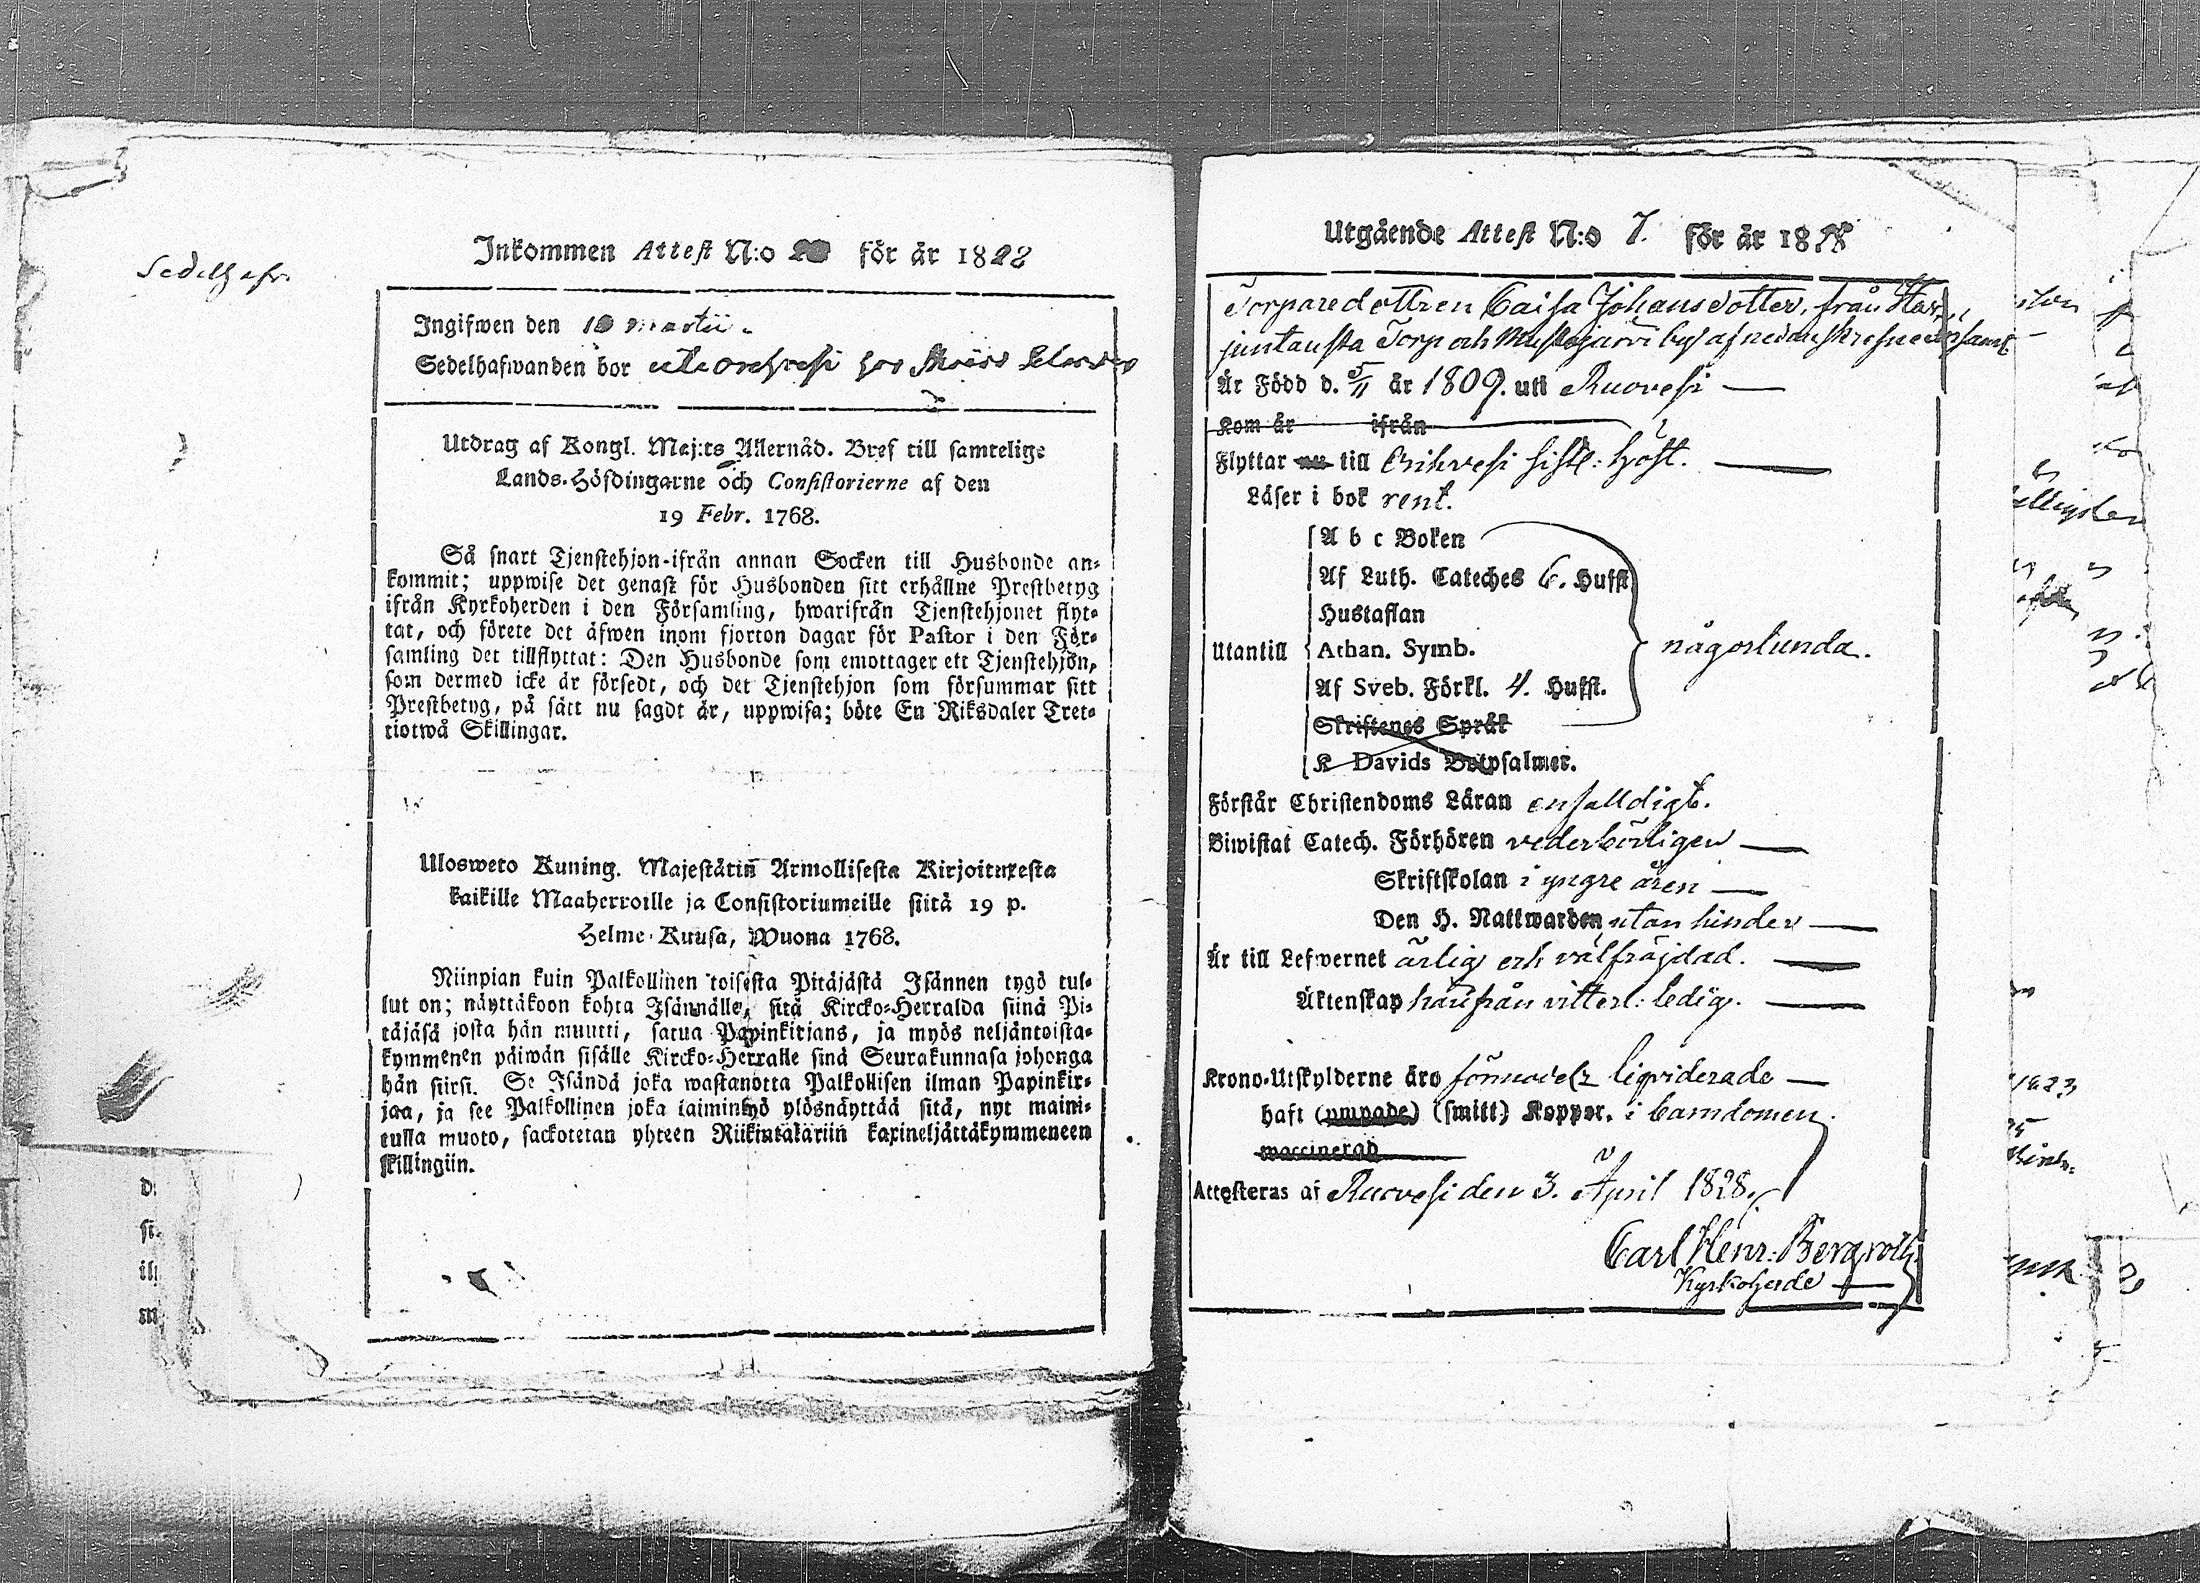 Sedelhafv.
Inkommen Attest N:o för år 1828
Ingifwen den martii
Sedelhafwanden bor hos
Utdrag af Kongl. Maj:ts Allernåd. Bref till samtelige
Lands-Höfdingarne och Consistorierne af den
19 Febr. 1768.
Så snart Tjenstehjon ifrån annan Socken till Husbonde an-
kommit; uppwise det genast för Husbonden sitt erhållne Prestbetyg
ifrån Kyrkoherden i den Församling, hwarifrån Tjenstehjonet flyt-
tat, och förete det äfwen inom fjorton dagar för Pastor i den För-
samling det tillflyttat: Den Husbonde som emottager ett Tjenstehjon,
som dermed icke är försedt, och det Tjenstehjon som försummar sitt
Prestbetyg, på sätt nu sagdt är, uppwisa; böte En Riksdaler Tret-
tiotwå Skillingar.
Ulosweto Kuning. Majestätin Armollisesta Kirjoituxesta
kaikille Maaherroille ja Consistoriumeille siitä 19 p.
Helme-Kuusa, Wuona 1768.
Niinpian kuin Palkollinen toisesta Pitäjästä Isännen tygö tul-
lut on; näyttäkoon kohta Isännälle, sitä Kircko-Herralda siinä Pi-
täjäsä josta hän muutti, saatua Papinkirjans, ja myös neljäntoista-
kymmenen päiwän sisälle Kircko-Herralle siinä Seurakunnasa johonga
hän siirsi. Se Isändä joka wastanotta Palkollisen ilman Papinkir-
jaa, ja see Palkollinen joka laiminlyö ylösnäyttää sitä, nyt maini-
tulla muoto, sackotetan yhteen Riikintalariin kaxineljättäkymmeneen
skillingiin.
Utgående Attest N:o 7. för år 1828
Torparedottren Caisa Johansdotter, från Har-
juntausta Torp och Mustajärvi by af nedanskrefne Församl
Är Född d. 5/11 år 1809. uti Ruovesi
Kom år ifrån
Flyttar nu till Orihvesi sistl: höst.
Läser i bok rent.
A b c Boken
Af Luth. Cateches 6. Hufst
Hustaflan
Utantill Athan. Symb. någorlunda.
Af Sveb. Förkl. 4. Hufst.
Skriftenes Språk
K Davids Botpsalmer.
Förstår Christendoms Läran enfalldigt.
Biwistat Catech. Förhören vederbörligen
Skriftskolan i yngre åren
Den H. Nattwarden utan hinder
Är till Lefwernet ärlig och välfräjdad.
Äktenskap härifrån vitterl: ledig.
Krono-Utskylderne äro liqviderade
haft (ympade) (smitt) Koppor. i barndomen.
waccinerad
Attesteras af Ruovesi den 3. April 1828.
Carl Henr: Bergroth
Kyrkoherde